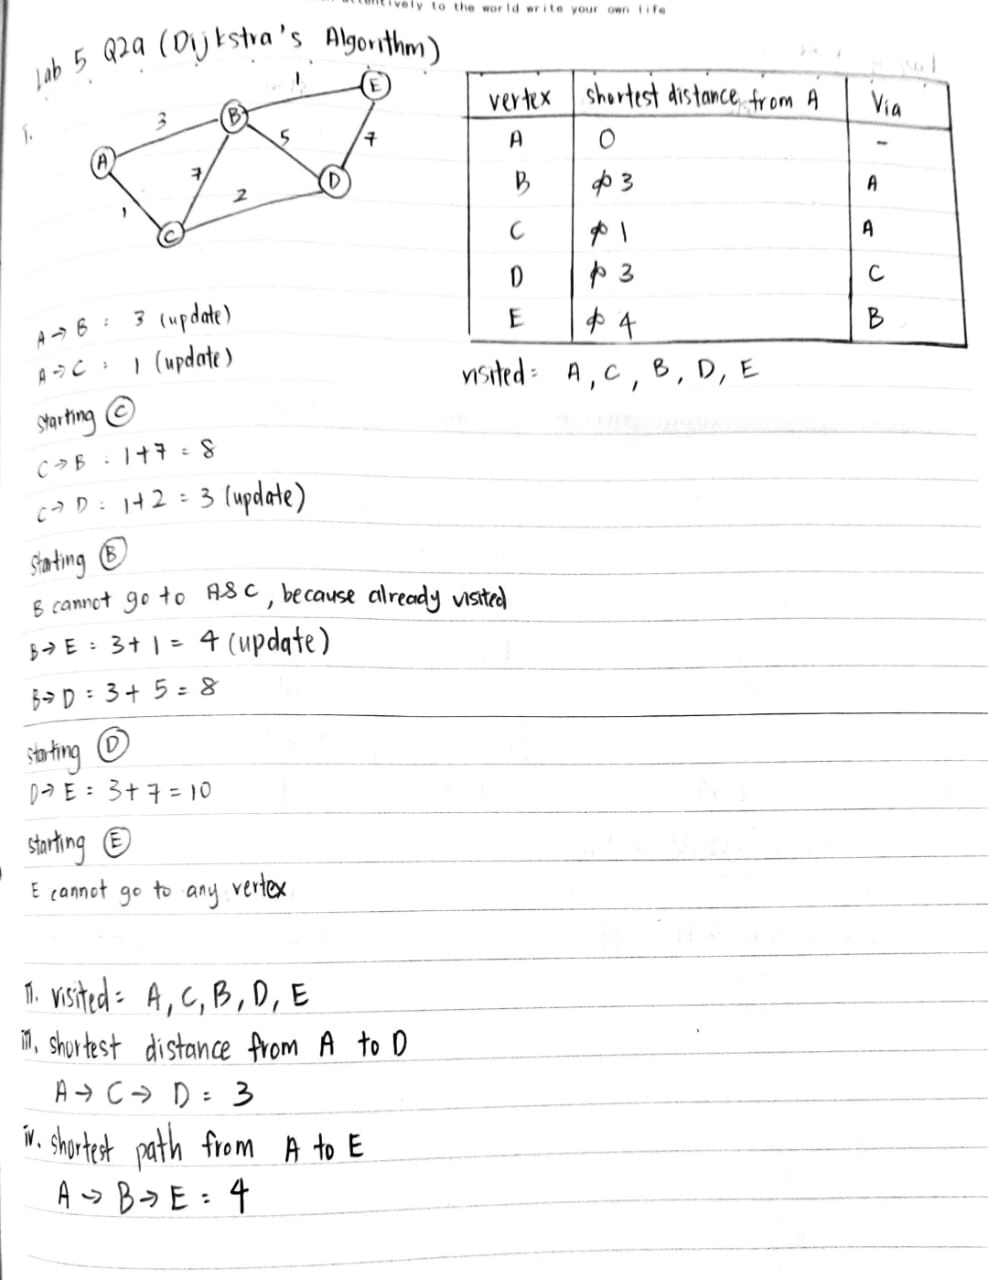 to the world write your own life
Lab 5 Q2a (Dijkstra's Algorithm)
i.
A
B
C
D
E
3
1
7
5
2
1
7
vertex shortest distance from A Via
A 0 -
B ∞ 3 A
C ∞ 1 A
D ∞ 3 C
E ∞ 4 B
visited = A, C, B, D, E
A → B : 3 (update)
A → C : 1 (update)
starting C
C → B : 1+7 = 8
C → D : 1+2 = 3 (update)
starting B
B cannot go to A & C, because already visited
B → E : 3+1 = 4 (update)
B → D : 3+5 = 8
starting D
D → E : 3+7 = 10
starting E
E cannot go to any vertex
ii. visited = A, C, B, D, E
iii. shortest distance from A to D
A → C → D = 3
iv. shortest path from A to E
A → B → E = 4